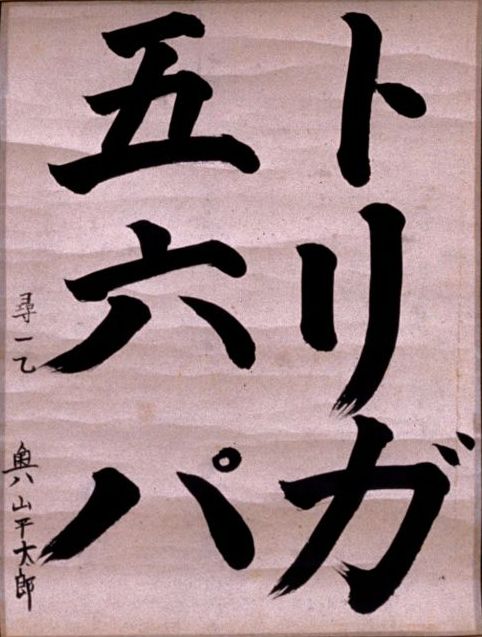 トリガ
五六パ
尋一乙 奥山平太郎